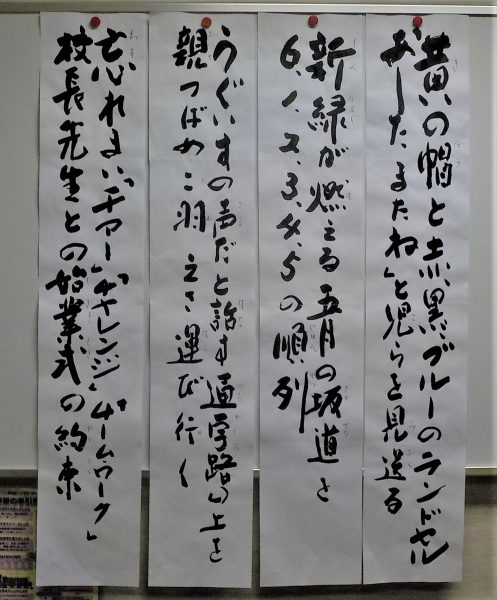 黄の帽と赤、黒、ブルーのランドセル
「あした、またね」と児らを見送る
新緑が燃える五月の坂道を
6、1、2、3、4、5の順列
うぐいすの声だと話す通学路の上を
親つばめ二羽えさ運び行く
忘れまい、「チアー」「チャレンジ」「チームワーク」
校長先生との始業式の約束